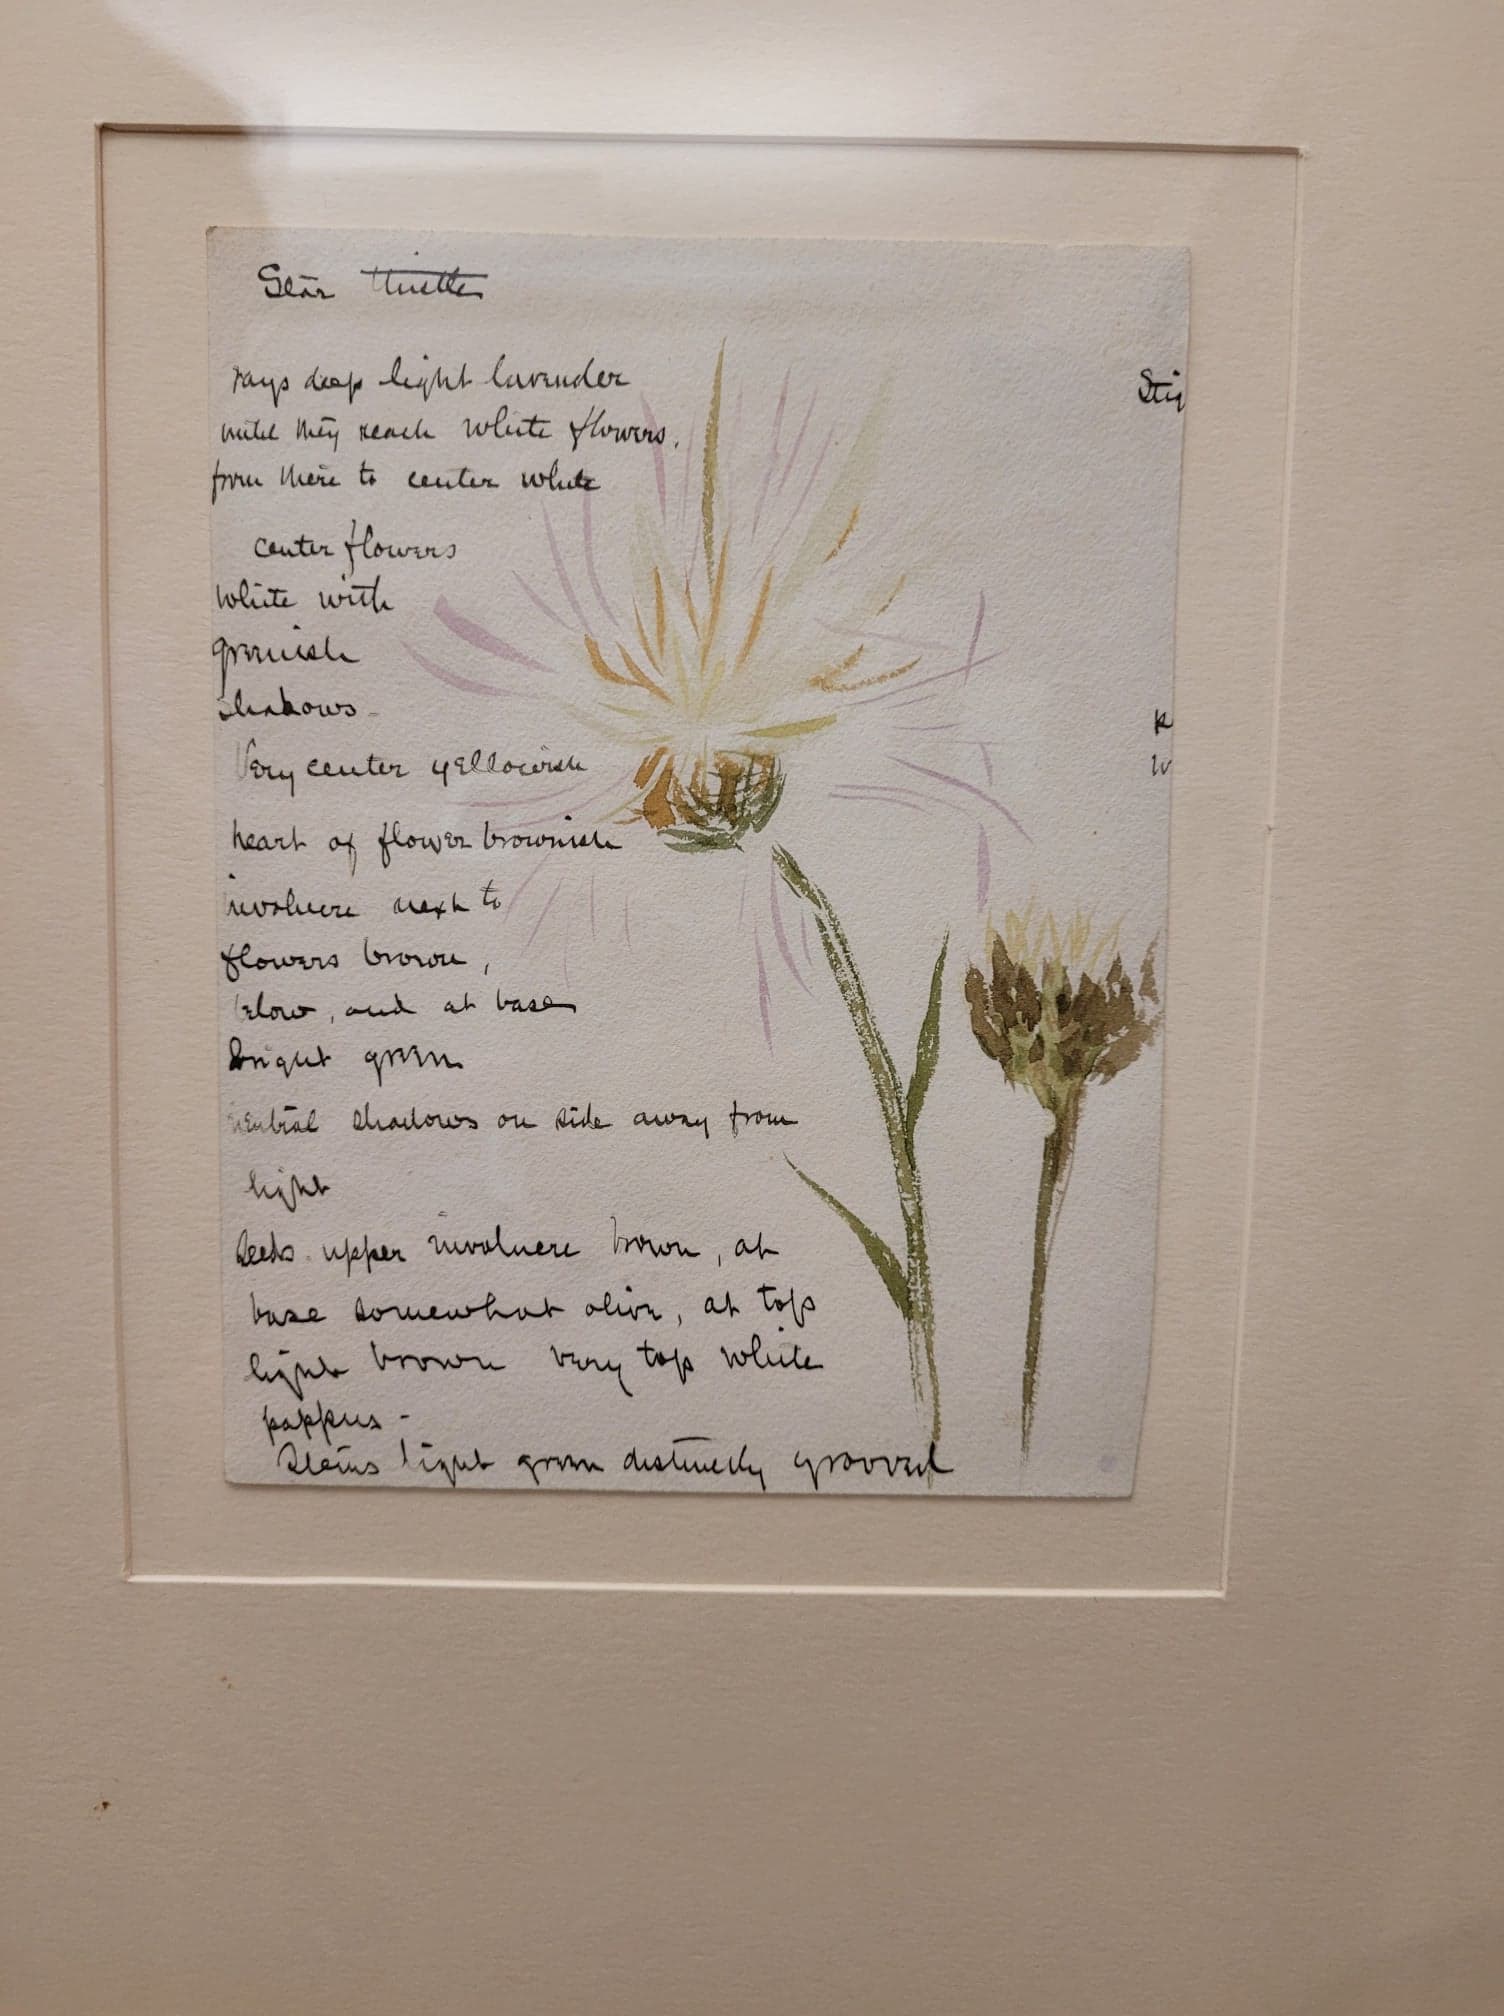 Star Thistle
rays deep light lavender
until they reach white flowers.
from there to center white
center flowers
white with
greenish
shadows -
Very center yellowish
heart of flower brownish
involucre next to
flowers brown,
below, and at base
bright green
neutral shadows on side away from
light
Seeds. upper involucre brown, at
base somewhat olive, at top
light brown very top white
pappus -
Stems light green distinctly grooved
Stig
R
W